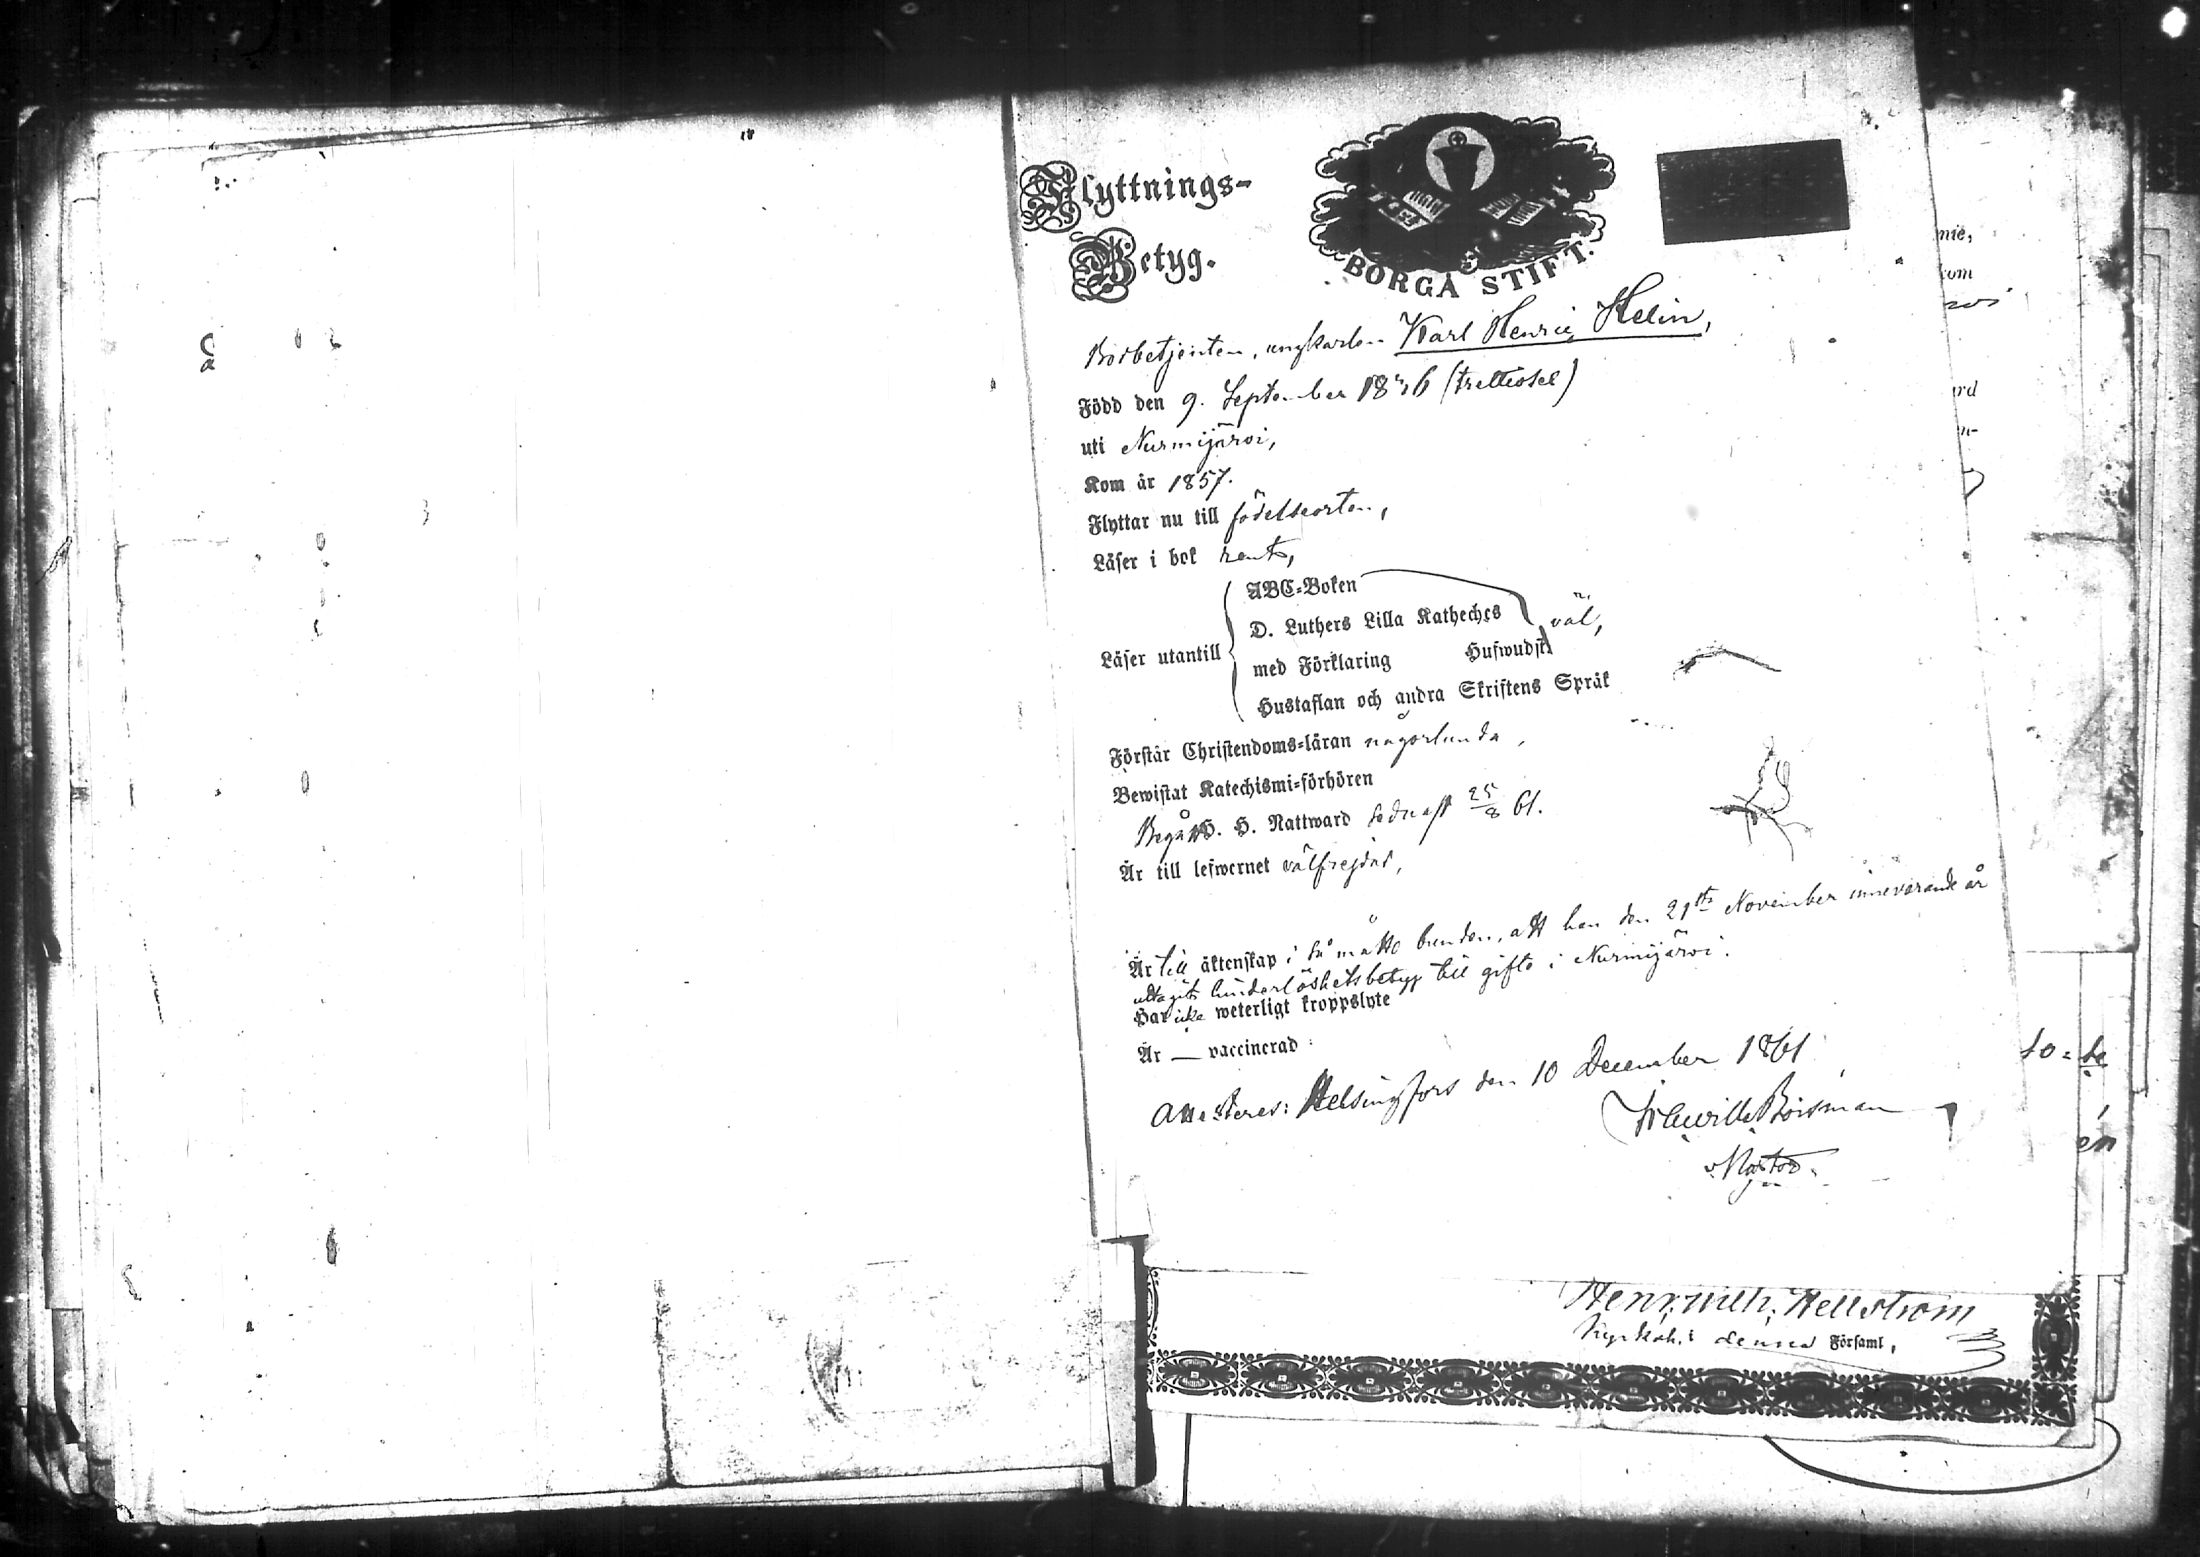 Flyttnings-
Betyg.
BORGÅ STIFT.
ungkarlen Karl Henric Helin,
Född den 9. September 1836 (trettiosex)
uti Nurmijärvi,
Kom år 1857.
Flyttar nu till födelseorten,
Läser i bok rent,
Läser utantill
ABC-Boken
D. Luthers Lilla Kateches
med Förklaring Hufwudst.
väl,
Hustaflan och andra Skriftens Språk
Förstår Christendoms-läran någorlunda,
Bewistat Katechismi-förhören
Begått H. H. Nattward sednast 25/8 61.
Är till lefwernet välfrejdad,
Är till äktenskap i så måtto bunden, att han den 21sta November innevarande år
uttagit hinderlöshetsbetyg till gifte i Nurmijärvi.
Har icke weterligt kroppslyte
Är — vaccinerad
Attesteras: Helsingfors den 10 December 1861
Pastor.
Henr. Wilh. Hellström
Kyrkoh. i denna Församl,